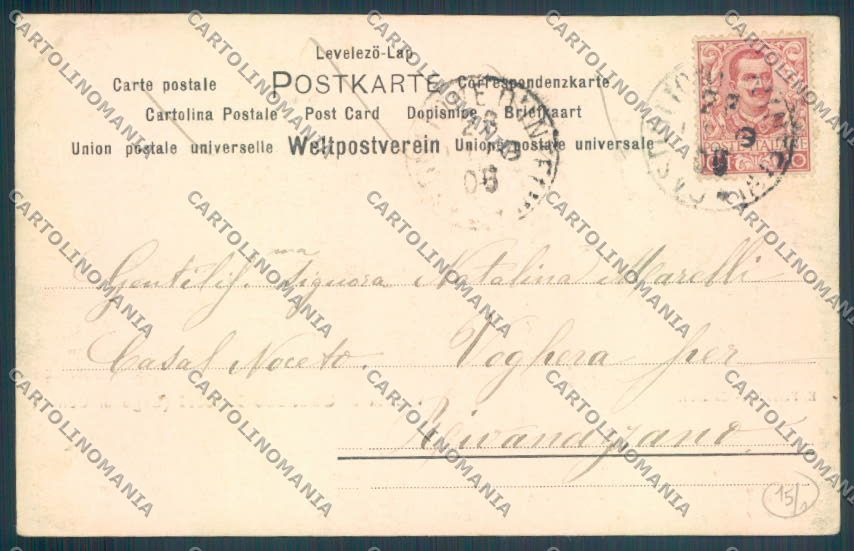 Levelezö-Lap
Carte postale POSTKARTE Correspondenzkarte
Cartolina Postale Post Card Dopisnice Briefkaart
Union postale universelle Weltpostverein Unione postale universale
POSTE ITALIANE
06
Gentilis.ma Signora Natalina Marelli
Casal Noceto. Voghera per
Rivanazzano
15/
CARTOLINOMANIA